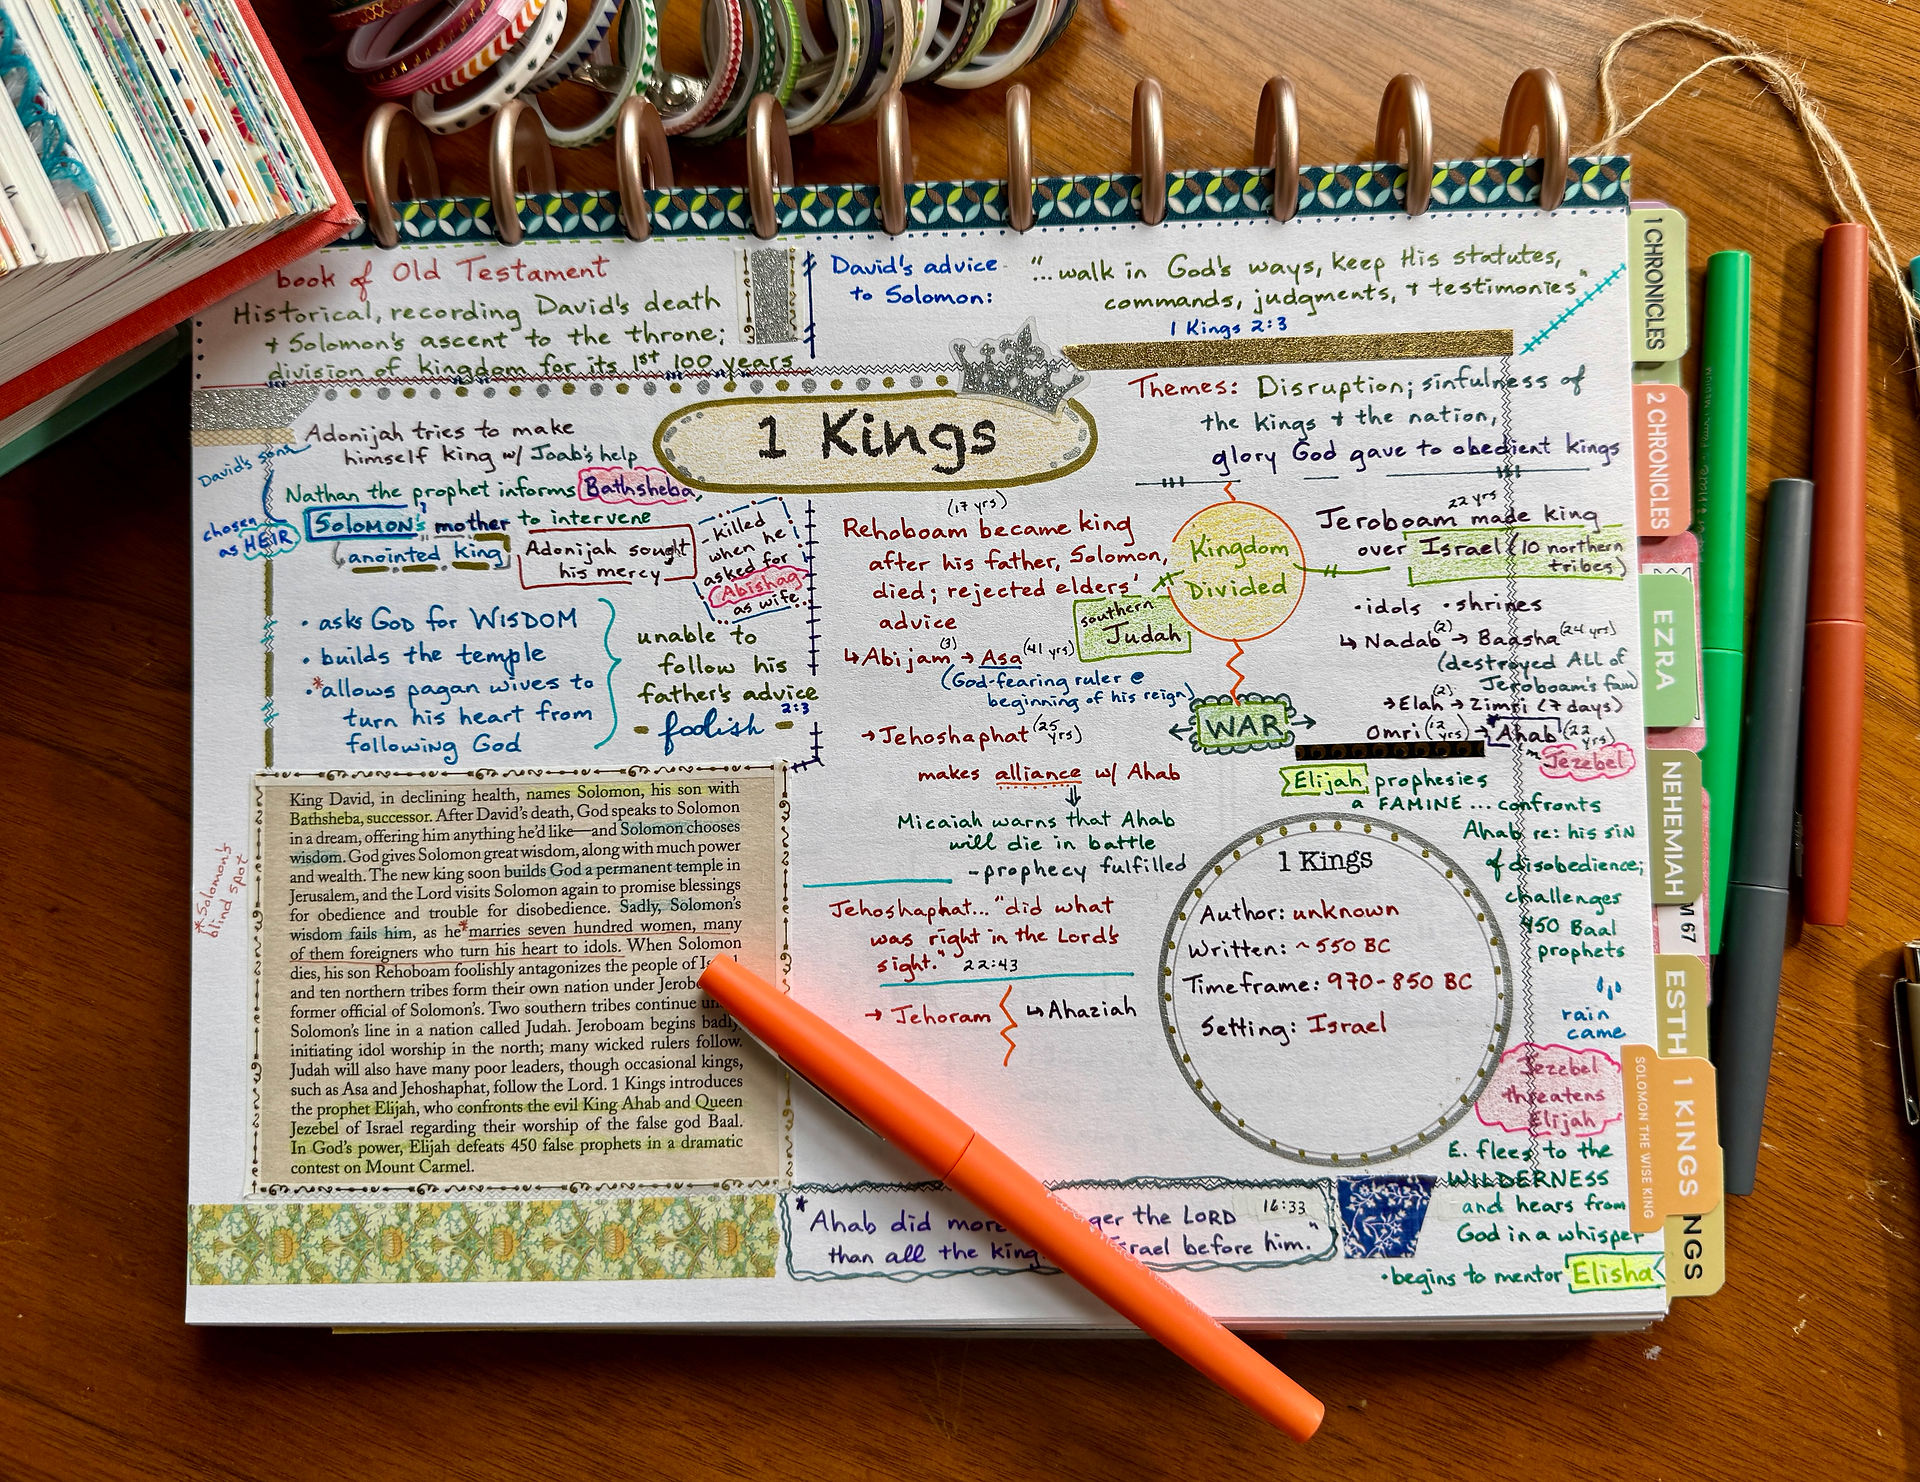 book of Old Testament
Historical, recording David's death
+ Solomon's ascent to the throne;
division of kingdom for its 1st 100 years
David's advice
to Solomon:
"...walk in God's ways, keep His statutes,
commands, judgments, + testimonies"
1 Kings 2:3
1 Kings
Themes: Disruption; sinfulness of
the kings + the nation,
glory God gave to obedient kings
Adonijah tries to make
himself king w/ Joab's help
David's sons
Nathan the prophet informs Bathsheba,
Solomon's mother to intervene
chosen
as HEIR
anointed king
Adonijah sought
his mercy
- killed
when he
asked for
Abishag
as wife
• asks God for WISDOM
• builds the temple
• *allows pagan wives to
turn his heart from
following God
unable to
follow his
father's advice
2:3
- foolish -
King David, in declining health, names Solomon, his son with
Bathsheba, successor. After David's death, God speaks to Solomon
in a dream, offering him anything he'd like—and Solomon chooses
wisdom. God gives Solomon great wisdom, along with much power
and wealth. The new king soon builds God a permanent temple in
Jerusalem, and the Lord visits Solomon again to promise blessings
for obedience and trouble for disobedience. Sadly, Solomon's
wisdom fails him, as he *marries seven hundred women, many
of them foreigners who turn his heart to idols. When Solomon
dies, his son Rehoboam foolishly antagonizes the people of
and ten northern tribes form their own nation under
former official of Solomon's. Two southern tribes continue
Solomon's line in a nation called Judah. Jeroboam begins badly,
initiating idol worship in the north; many wicked rulers follow.
Judah will also have many poor leaders, though occasional kings,
such as Asa and Jehoshaphat, follow the Lord. 1 Kings introduces
the prophet Elijah, who confronts the evil King Ahab and Queen
Jezebel of Israel regarding their worship of the false god Baal.
In God's power, Elijah defeats 450 false prophets in a dramatic
contest on Mount Carmel.
*Solomon's
blind spot
(17 yrs)
Rehoboam became king
after his father, Solomon,
died; rejected elders'
advice
southern
Judah
↳ Abijam (3) → Asa (41 yrs)
(God-fearing ruler @
beginning of his reign)
→ Jehoshaphat (25 yrs)
makes alliance w/ Ahab
Micaiah warns that Ahab
will die in battle
- prophecy fulfilled
Jehoshaphat... "did what
was right in the Lord's
sight." 22:43
→ Jehoram
↳ Ahaziah
Kingdom
Divided
WAR
22 yrs
Jeroboam made king
over Israel (10 northern
tribes)
• idols • shrines
↳ Nadab (2) → Baasha (24 yrs)
(destroyed ALL of
Jeroboam's fam)
→ Elah (2) → Zimri (7 days)
Omri (12 yrs) → *Ahab (22 yrs)
m Jezebel
Elijah prophesies
a FAMINE ... confronts
Ahab re: his sin
of disobedience;
challenges
450 Baal
prophets
rain
came
Jezebel
threatens
Elijah
E. flees to the
WILDERNESS
and hears from
God in a whisper
• begins to mentor Elisha
1 Kings
Author: unknown
Written: ~ 550 BC
Timeframe: 970-850 BC
Setting: Israel
16:33
* Ahab did more ger the LORD
than all the king rael before him."
1 CHRONICLES
2 CHRONICLES
EZRA
NEHEMIAH
M 67
ESTH
1 KINGS
SOLOMON THE WISE KING
NGS